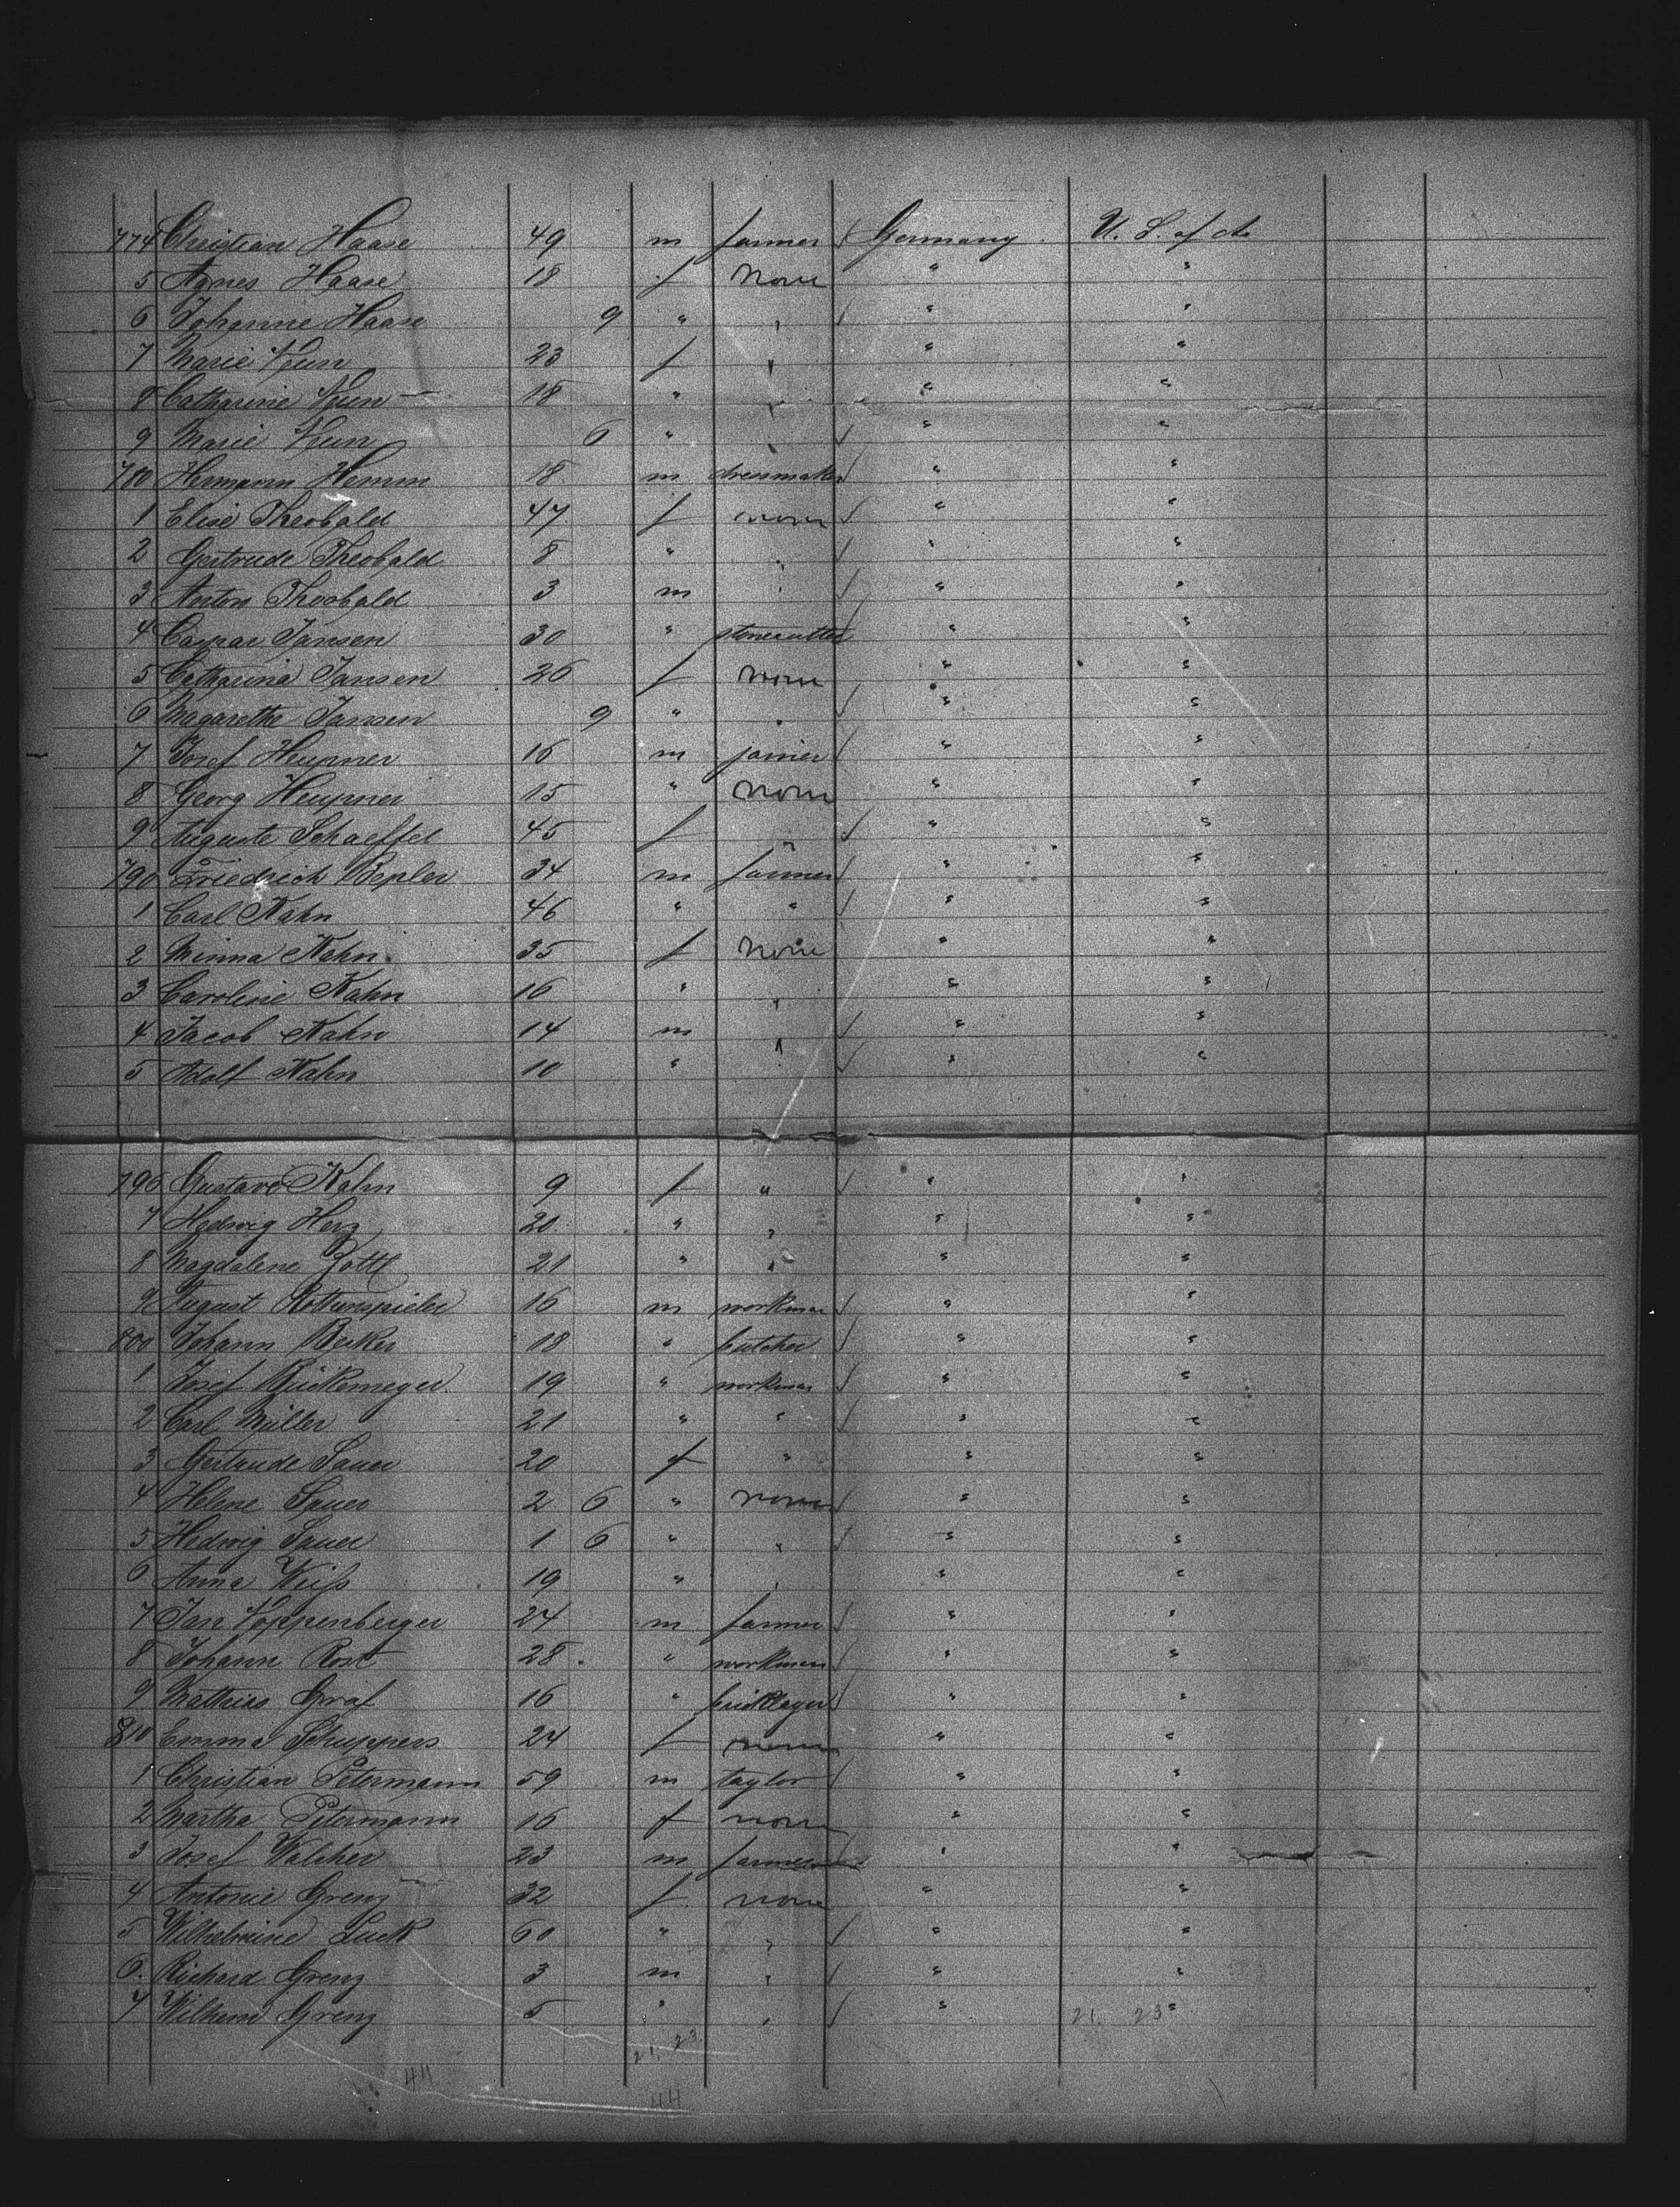 774 Christian Haase 49 m farmer √ Germany U. S. of A.
5 Agnes Haase 18 f None " "
6 Johanne Haase 9 " " √ " "
7 Marie 23 f " " "
8 Catharine 18 " " " "
9 Marie 6 " " √ " "
780 Hermann Hemm 18 m dressmaker √ " "
1 Elise Theobald 47 f none √ " "
2 Gertrude Theobald 8 " " √ " "
3 Anton Theobald 3 m " √ " "
4 Caspar Jansen 30 " stonecutter √ " "
5 Catharina Jansen 26 f none " "
6 Magarethe Jansen 9 " " √ " "
7 Josef Heupner 16 m joiner √ " "
8 Georg Heupner 15 " None " "
9 Auguste Schaeffel 45 f " √ " "
790 Friedrich Bepler 34 m farmer √ " "
1 Carl Kahn 46 " " √ " "
2 Minna Kahn 35 f None " "
3 Caroline Kahn 16 " " " "
4 Jacob Kahn 14 m " √ " "
5 Adolf Kahn 10 " " √ " "
796 Gustave Kahn 9 f " √ " "
7 Hedwig Herz 20 " " " "
8 Magdalene Zottl 21 " " " "
9 August Rottenspieler 16 m workman √ " "
800 Johann Becker 18 " butcher √ " "
1 Josef Rückemeyer 19 " workman √ " "
2 Carl Müller 21 " " √ " "
3 Gertrude Sauer 20 f " " "
4 Helene Sauer 2 6 " None √ " "
5 Hedwig Sauer 1 6 " " √ " "
6 Anna Weiß 19 " " " "
7 Jan Poppenberger 24 m farmer √ " "
8 Johann Rost 28 " workman √ " "
9 Mathias Graf 16 " bricklayer √ " "
810 Emma Schuppers 24 f none " "
1 Christian Petermann 59 m taylor √ " "
2 Martha Petermann 16 f none " "
3 Josef Walcher 23 m farmer " "
4 Antonie Grenz 32 f none " "
5 Wilhelmine Luck 60 " " √ " "
6. Richard Grenz 3 m " √ " "
7 Wilhem Grenz 5 " " √ " "
21. 23
21. 23
44
44